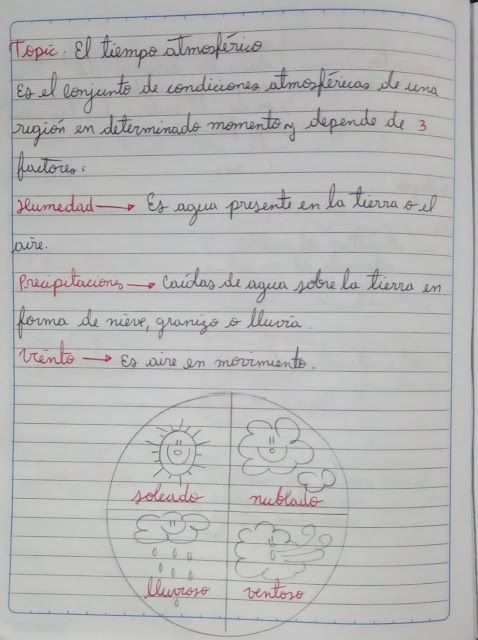 Topic: El tiempo atmosférico
Es el conjunto de condiciones atmosféricas de una
región en determinado momento y depende de 3
factores:
Humedad → Es agua presente en la tierra o el
aire.
Precipitaciones → Caídas de agua sobre la tierra en
forma de nieve, granizo o lluvia.
Viento → Es aire en movimiento.
soleado nublado
lluvioso ventoso